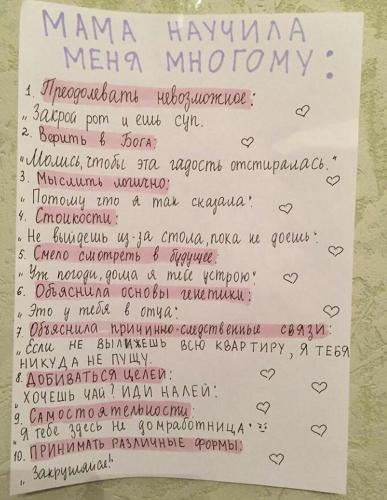 МАМА НАУЧИЛА
МЕНЯ МНОГОМУ:
1. Преодолевать невозможное:
„Закрой рот и ешь суп.
2. Верить в Бога:
„Молись, чтобы эта гадость отстиралась."
3. Мыслить логично:
„Потому что я так сказала".
4. Стойкости:
„Не выйдешь из-за стола, пока не доешь".
5. Смело смотреть в будущее:
„Уж погоди, дома я тебе устрою".
6. Объяснила основы генетики:
„Это у тебя в отца".
7. Объяснила причинно-следственные связи:
„ЕСЛИ НЕ ВЫЛИЖЕШЬ ВСЮ КВАРТИРУ, Я ТЕБЯ
НИКУДА НЕ ПУЩУ.
8. ДОБИВАТЬСЯ ЦЕЛЕЙ:
„ХОЧЕШЬ ЧАЙ? ИДИ НАЛЕЙ".
9. САМОСТОЯТЕЛЬНОСТИ:
„Я ТЕБЕ ЗДЕСЬ НЕ ДОМРАБОТНИЦА"
10. ПРИНИМАТЬ РАЗЛИЧНЫЕ ФОРМЫ:
„Закругляйся!"